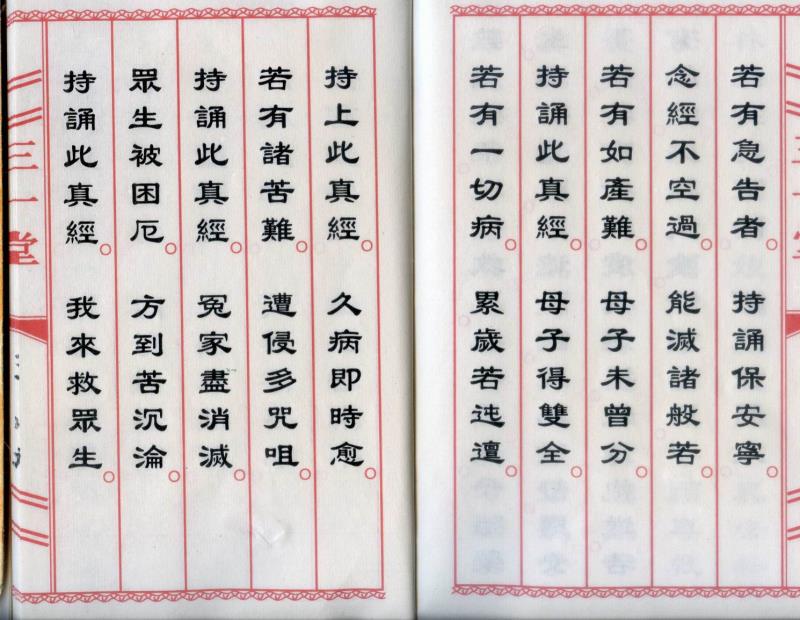 若有急告者。持誦保安寧。
念經不空過。能滅諸般若。
若有如產難。母子未曾分。
持誦此真經。母子得雙全。
若有一切病。累歲若迍邅。
持上此真經。久病即時愈。
若有諸苦難。遭侵多咒咀。
持誦此真經。冤家盡消滅。
眾生被困厄。方到苦沉淪。
持誦此真經。我來救眾生。
三一堂